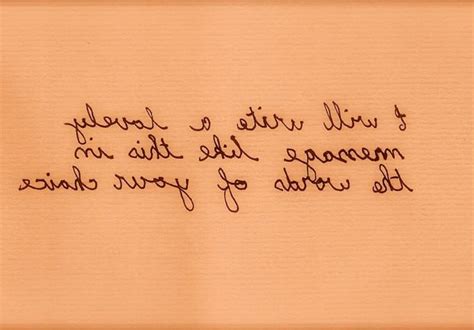 I will write a lovely
message like this in
the words of your choice